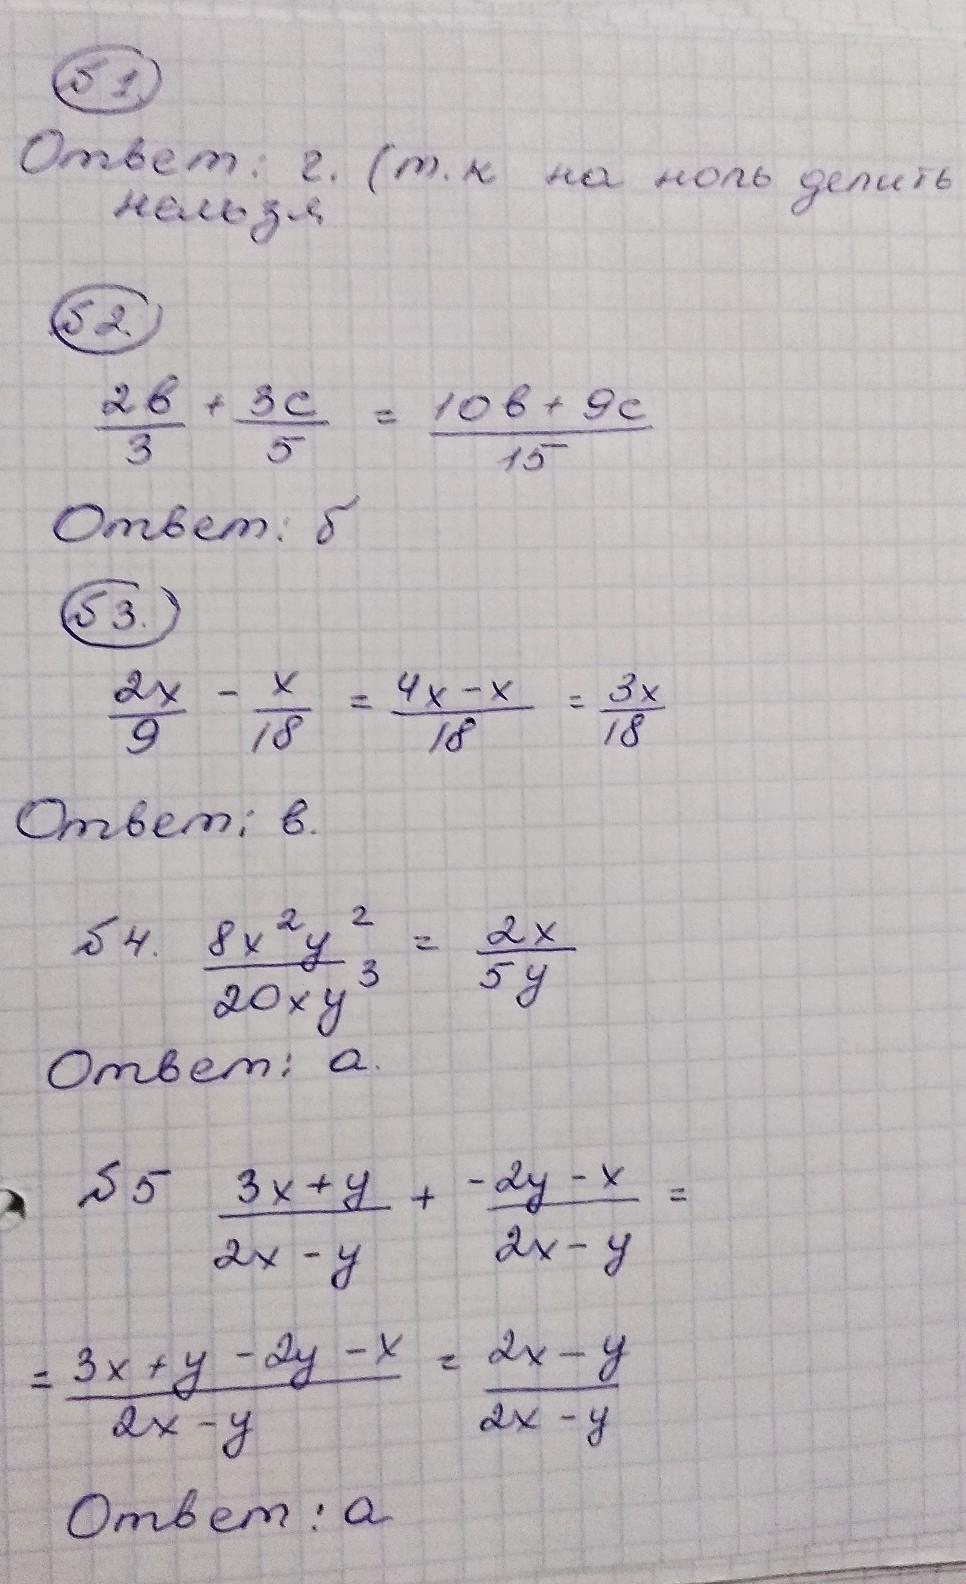 Б1.
Ответ: г. (т.к на ноль делить
нельзя
Б2.
2в/3 + 3с/5 = (10в + 9с)/15
Ответ: б
Б3.
2x/9 - x/18 = (4x - x)/18 = 3x/18
Ответ: в.
Б4. 8x²y²/20xy³ = 2x/5y
Ответ: а.
Б5 (3x+y)/(2x-y) + (-2y-x)/(2x-y) =
= (3x+y-2y-x)/(2x-y) = (2x-y)/(2x-y)
Ответ: а